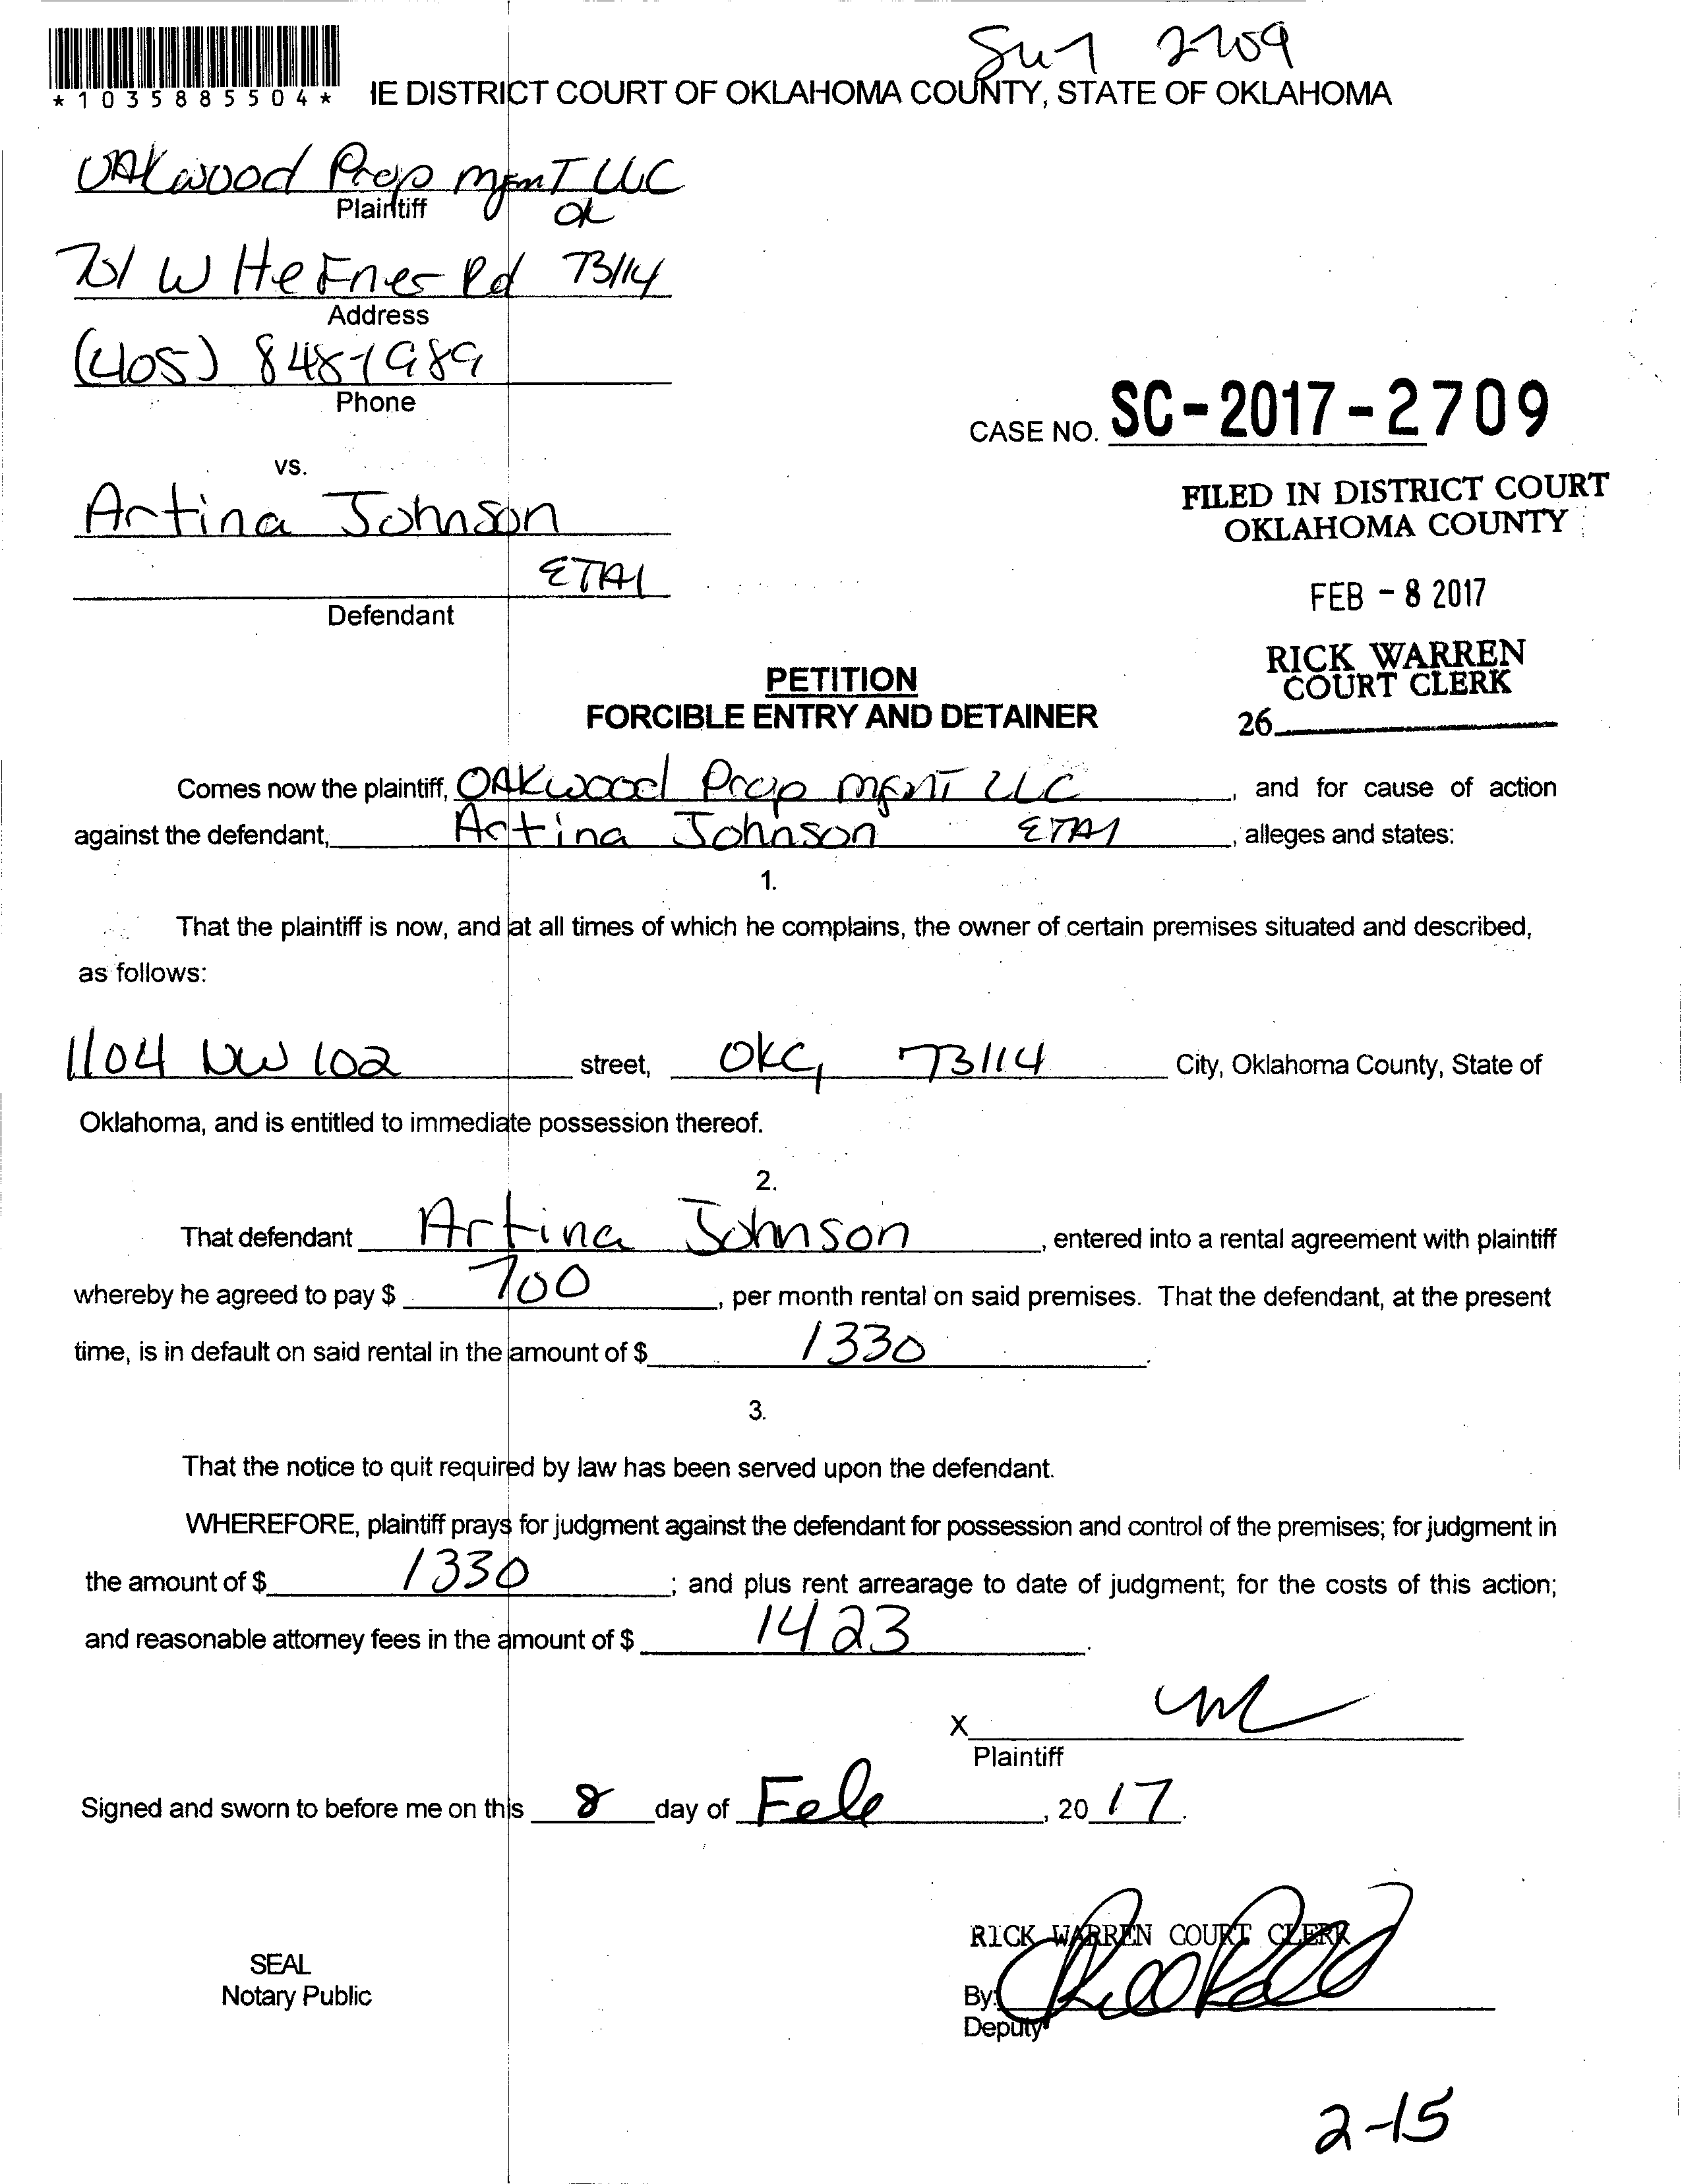 2709
*1035885504*
IE DISTRICT COURT OF OKLAHOMA COUNTY, STATE OF OKLAHOMA
OAkwood Prop mgmT LLC
Plaintiff
OK
701 W HeFner Rd 73114
Address
(405) 848-1989
Phone
CASE NO. SC-2017-2709
vs.
Artina Johnson
ETAl
Defendant
FILED IN DISTRICT COURT
OKLAHOMA COUNTY
FEB - 8 2017
RICK WARREN
COURT CLERK
26
PETITION
FORCIBLE ENTRY AND DETAINER
Comes now the plaintiff, OAKwood Prop mgmT LLC, and for cause of action
against the defendant, Artina Johnson ETAl, alleges and states:
1.
That the plaintiff is now, and at all times of which he complains, the owner of certain premises situated and described,
as follows:
1104 NW 102 street, OKC, 73114 City, Oklahoma County, State of
Oklahoma, and is entitled to immediate possession thereof.
2.
That defendant Artina Johnson, entered into a rental agreement with plaintiff
whereby he agreed to pay $ 700, per month rental on said premises. That the defendant, at the present
time, is in default on said rental in the amount of $ 1330.
3.
That the notice to quit required by law has been served upon the defendant.
WHEREFORE, plaintiff prays for judgment against the defendant for possession and control of the premises; for judgment in
the amount of $ 1330; and plus rent arrearage to date of judgment; for the costs of this action;
and reasonable attorney fees in the amount of $ 1423.
X
Plaintiff
Signed and sworn to before me on this 8 day of Feb, 2017.
RICK WARREN COURT CLERK
SEAL
Notary Public
By:
Deputy
2-15